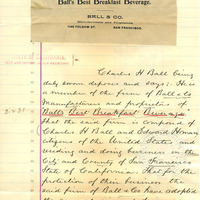 Ball's Best Breakfast Beverage.
BALL & CO.
SAN FRANCISCO.
Charles H Ball being
duly sworn deposes and says: He is
a member of the firm of Ball & Co
Manufacturers and proprietors of
Ball's Best Breakfast Beverage
that the said firm is composed of
Charles H Ball and Edward
citizens of the United States and
residing and doing business in the
City and County of San Francisco
State of California: That for the
protection of their business the
said firm of Ball & Co have adopted